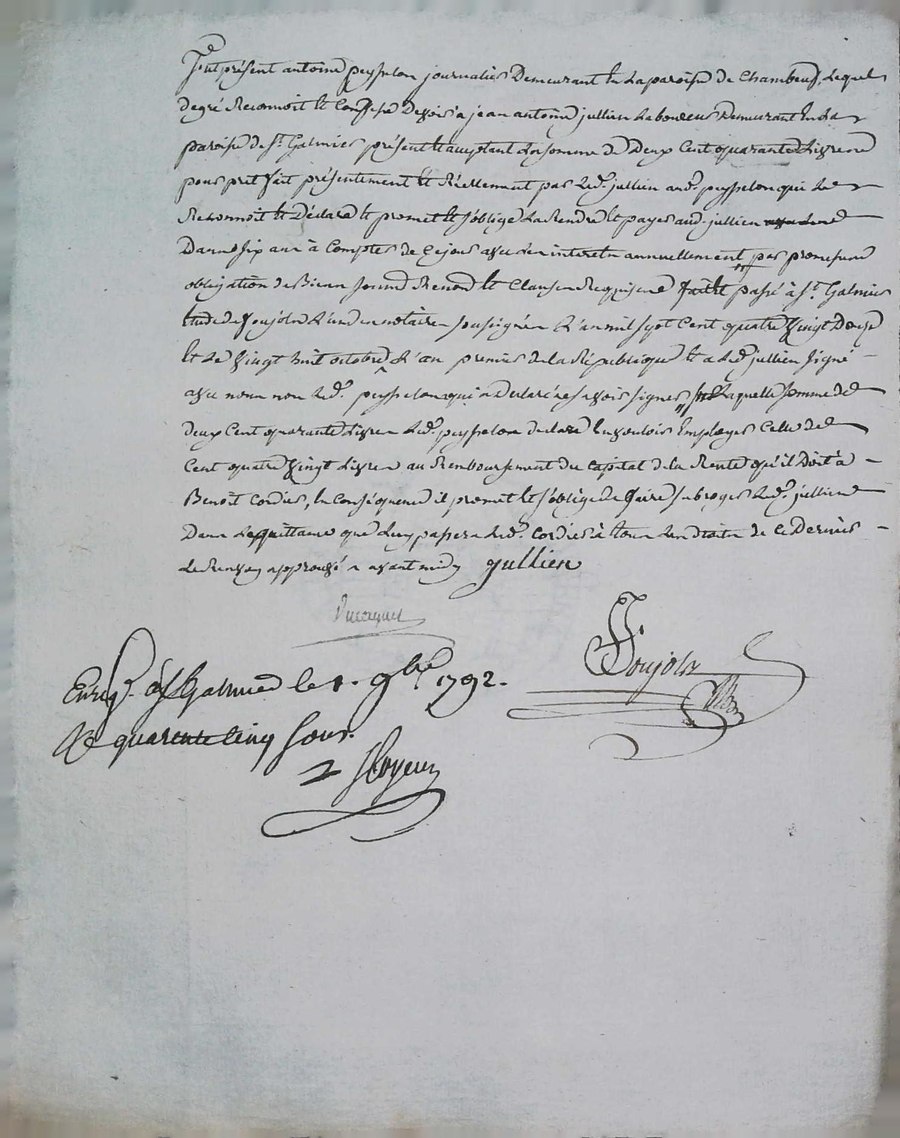 fut présent antoine peysselon journalier Demeurant En la paroisse de Chambeuf, Lequel
de gré Reconnoit Et Confesse Devoir a jean antoine jullien Laboureur Demeurant En la
paroisse de St. Galmier présent Et acceptant La somme de Deux Cent quarante Livres
pour prêt fait présentement Et Réellement par Led. jullien aud. peysselon qui Le
Reconnoit Et Déclare Et promet Et s'oblige La Rendre Et payer aud. jullien
Dans six ans à Compter de Ce jour avec Les interets annuellement par promesses
obligation de Biens soumd. Renond. Et Clauses Requises fait Et passé à St. Galmier
Etude de Soujola L'un des notaires soussignés L'an mil sept Cent quatre Vingt Douze
Et Le Vingt huit octobre L'an premier de la République Et a Led. jullien signé
avec nous non Led. peysselon qui a Déclaré ne savoir signer, sur Laquelle somme de
deux Cent quarante Livres Led. peysselon declare En vouloir Employer Celle de
Cent quatre Vingt Livres au Remboursement du Capital de la Rente qu'il Doit à
Benoit Cordier, En Conséquence il promet Et s'oblige de faire subroger Led. jullien
Dans La quittance que Luy passera Led. Cordier à tous Les droits de Ce Dernier
Le Renvoy approuvé avant midy
jullien
Soujola
Enreg. à St Galmier le 1. 9bre 1792.
Re quarente Cinq sous.